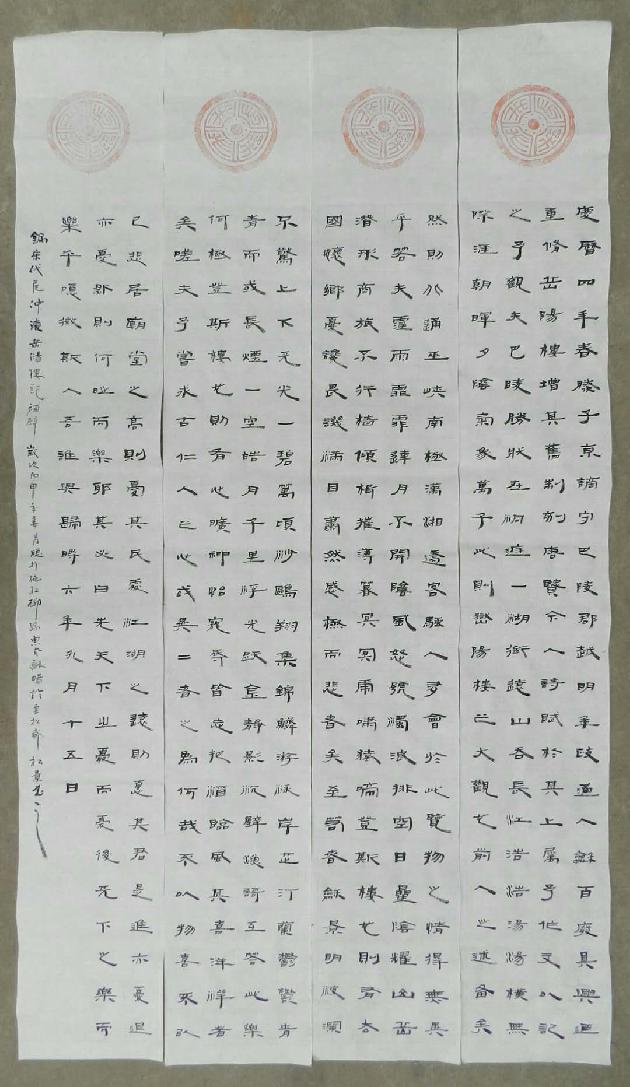 慶曆四年春滕子京謫守巴陵郡越明年政通人和百廢具興迺
重修岳陽樓增其舊制刻唐賢今人詩賦於其上屬予作文以記
之予觀夫巴陵勝狀在洞庭一湖銜遠山吞長江浩浩湯湯橫無
際涯朝暉夕陰氣象萬千此則岳陽樓之大觀也前人之述備矣
然則北通巫峽南極瀟湘遷客騷人多會於此覽物之情得無異
乎若夫霪雨霏霏連月不開陰風怒號濁浪排空日星隱耀山岳
潛形商旅不行檣傾楫摧薄暮冥冥虎嘯猿啼登斯樓也則有去
國懷鄉憂讒畏譏滿目蕭然感極而悲者矣至若春和景明波瀾
不驚上下天光一碧萬頃沙鷗翔集錦鱗游泳岸芷汀蘭鬱鬱青
青而或長煙一空皓月千里浮光躍金靜影沉璧漁歌互答此樂
何極登斯樓也則有心曠神怡寵辱皆忘把酒臨風其喜洋洋者
矣嗟夫予嘗求古仁人之心或異二者之為何哉不以物喜不以
己悲居廟堂之高則憂其民處江湖之遠則憂其君是進亦憂退
亦憂然則何時而樂耶其必曰先天下之憂而憂後天下之樂而
樂乎噫微斯人吾誰與歸時六年九月十五日
錄宋代范仲淹岳陽樓記 歲次丙申